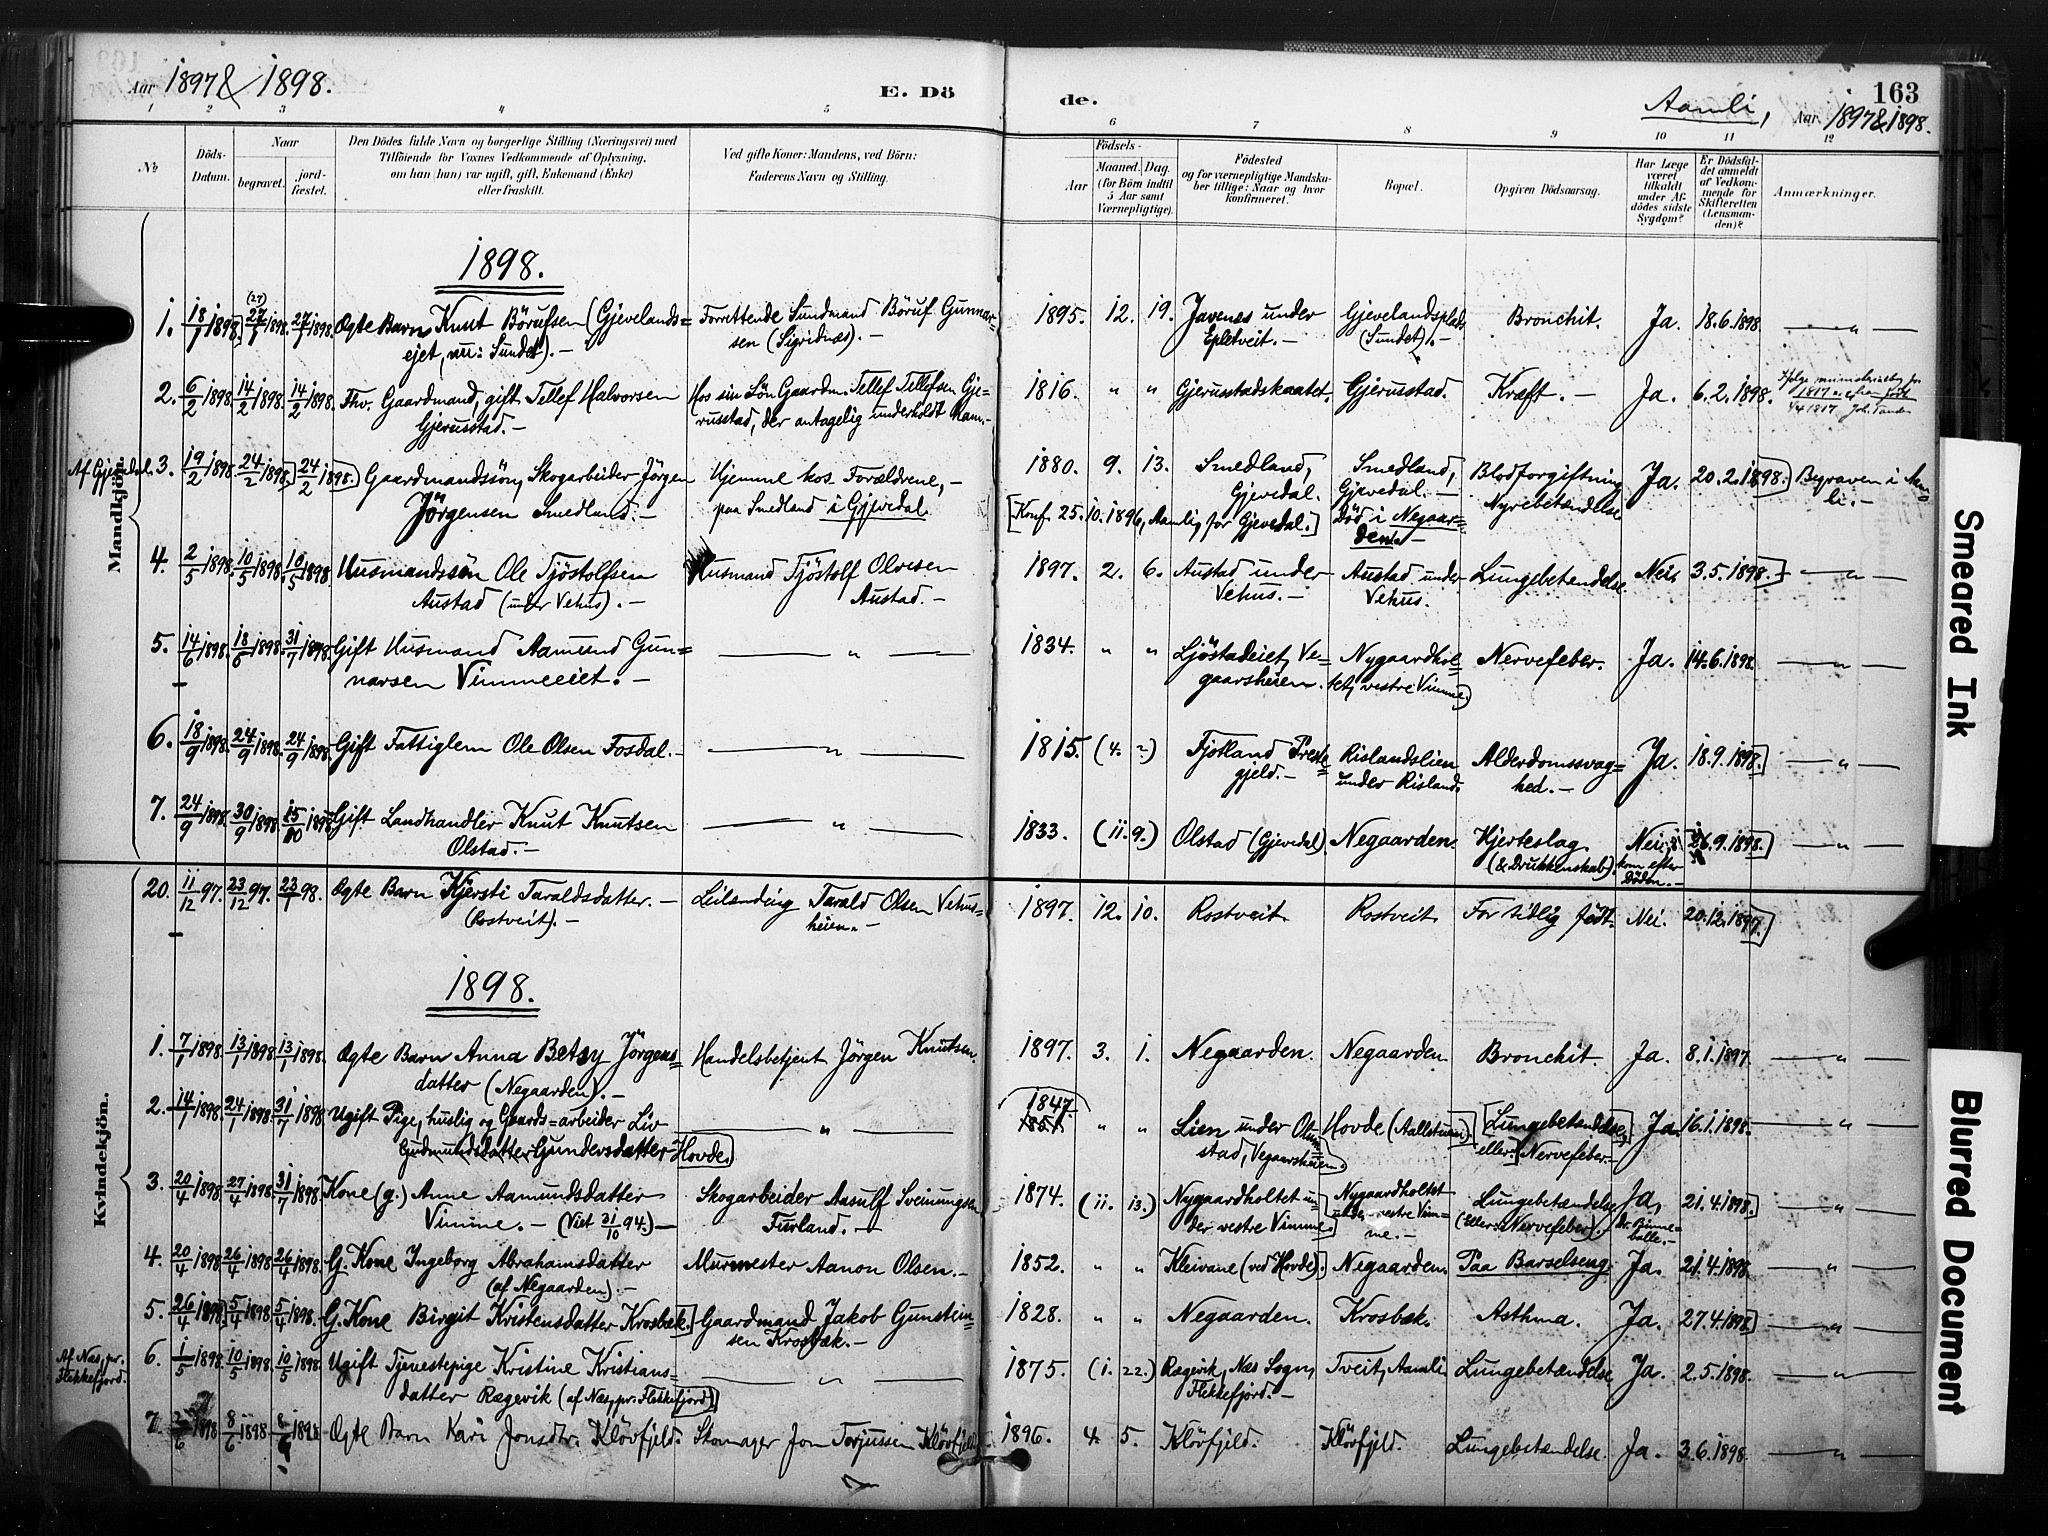 Aar 1897 & 1898.
E. Dö
de.
Aamli,
163
Aar 1897 & 1898.
1 2 3 4 5 6 7 8 9 10 11 12
No
Döds-Datum.
Naar
begravet.
jord-fæstet.
Den Dödes fulde Navn og borgerlige Stilling (Næringsvei) med
Tilföiende for Voxnes Vedkommende af Oplysning,
om han (hun) var ugift, gift, Enkemand (Enke)
eller fraskilt.
Ved gifte Koner: Mandens, ved Börn:
Faderens Navn og Stilling.
Födsels-
Aar
Maaned. Dag.
(for Börn indtil
5 Aar samt
Værnepligtige).
Födested
og for værnepligtige Mandska-
ber tillige: Naar og hvor
konfirmeret.
Bopæl.
Opgiven Dödsaarsag.
Har Læge
været
tilkaldt
under Af-
dödes sidste
Sygdom?
Er Dödsfal-
det anmeldt
af Vedkom-
mende for
Skifteretten
(Lensman-
den)?
Anmærkninger.
Mandkjön.
1898.
1. 18/1 1898. (27) 27/1 1898. 27/1 1898. Ægte Barn Knut Börufsen (Gjevelands=
ejet, nu: Sundet). —
Forrettende Sundmand Böruf Gunnar-
sen (Sigridnæs). —
1895. 12. 19. Javenes under
Epletveit. —
Gjevelandsplads
(Sundet). —
Bronchit. Ja. 18.6.1898. — „ —
2. 6/2 1898. 14/2 1898. 14/2 1898. Fhv. Gaardmand, gift Tellef Halvorsen
Gjerustad. —
Hos sin Sön Gaardm. Tellef Tellefsen Gje-
russtad, der antagelig underholdt ham. —
1816. „ „ Gjerustadskaatet. Gjerustad. Kræft. — Ja. 6.2.1898.
1817
Af Gjevedal. 3. 19/2 1898. 24/2 1898. 24/2 1898. Gaardmandssön, Skogarbeider Jörgen
Jörgensen Smedland. —
Hjemme hos Forældrene, —
paa Smedland i Gjevedal.
1880. 9. 13. Smedland,
Gjevedal.
[Konf. 25.10.1896, Aamli, for Gjevedal.]
Smedland,
Gjevedal. —
Död i Negaar-
den. —
Blodforgiftning
Nyrebetændelse
Ja. 20.2.1898. Begraven i Aam-
li. —
4. 2/5 1898. 10/5 1898. 10/5 1898. Husmandssön Ole Tjöstolfsen
Austad (under Vehus). —
Husmand Tjöstolf Olvesen
Austad. —
1897. 2. 6. Austad under
Vehus. —
Austad under
Vehus.
Lungebetændelse Nei. 3.5.1898. — „ —
5. 14/6 1898. 18/6 1898. 31/7 1898. Gift Husmand Aamund Gun=
narsen Vimmeeiet. —
— „ —
1834. „ „ Ljöstadeiet, Ve-
gaarsheien.
Nygaardhol-
tet, vestre Vimme.)
Nervefeber. Ja. 14.6.1898. — „ —
6. 18/9 1898. 24/9 1898. 24/9 1898. Gift Fattiglem Ole Olsen Fosdal. —
— „ —
1815. (4. 2.) Fjotland Præste
gjeld. —
Rislandslien
under Risland.
Alderdomssvag=
hed. —
Ja. 18.9.1898. — „ —
7. 24/9 1898. 30/9 1898. 15/10 1898. Gift Landhandler Knut Knutsen
Olstad. —
— „ —
1833. (11. 9.) Olstad (Gjevedal). Negaarden. Hjerteslag.
(& Drukkenskab).
Nei;
kom efter
Döden. —
26.9.1898. — „ —
Kvindekjön.
20. 11/12 97. 23/12 97. 23/1 98. Ægte Barn Kjersti Taraldsdatter. —
(Rostveit). —
Leilænding Tarald Olsen Vehus-
heien. —
1897. 12. 10. Rostveit Rostveit For tidlig födt. Nei. 20.12.1897.
1898.
1. 7/1 1898. 13/1 1898. 13/1 1898. Ægte Barn Anna Betsy Jörgens=
datter (Negaarden). —
Handelsbetjent Jörgen Knutsen.
1897. 3. 1. Negaarden. Negaarden. Bronchit. Ja. 8.1.1897. — „ —
2. 14/1 1898. 24/1 1898. 31/7 1898. Ugift Pige, huslig og Gaards=arbeider Liv
Gudmundsdatter Gundersdatter Hovde.
— „ —
1847.
1851. „ „ Lien under Olm-
stad, Vegaarsheien.
Hovde (Aallstuen)
[Lungebetændelse,
eller] Nervefeber. —
Ja. 16.1.1898. — „ —
3. 20/4 1898. 27/4 1898. 31/7 1898. Kone (g.) Anne Aamundsdatter
Vimme. — (Viet 31/10 94.) —
Skogarbeider Aasulf Sveinungsen
Furland. —
1874. (11. 13.) Nygaardholtet un-
der vestre Vimme.
Nygaardholtet
under vestre Vim-
me. —
Lungebetændelse
(Eller: Nervefeber).
Ja,
Dr. Binne-
balle. —
21.4.1898. — „ —
4. 20/4 1898. 26/4 1898. 26/4 1898. G. Kone Ingeborg Abrahamsdatter
(af Negaarden). —
Murmester Aanon Olsen. —
1852. „ „ Kleivane (ved Hovde). Negaarden. Paa Barselseng. Ja. 21.4.1898. — „ —
5. 26/4 1898. 5/4 1898. 5/4 1898. G. Kone Birgit Kristensdatter Krosbæk.
Gaardmand Jakob Gunstein-
sen Krosbæk. —
1828. „ „ Negaarden. Krosbæk. Asthma. Ja. 27.4.1898. — „ —
Af Næs, pr.
Flekkefjord. 6. 1/5 1898. 10/5 1898. 10/5 1898. Ugift Tjenestepige Kristine Kristians=
datter Rægevik (af Næs, pr. Flekkefjord).
— „ —
1875. (1. 22.) Rægevik, Næs Sogn,
Flekkefjord. —
Tveit, Aamli. Lungebetændelse Ja. 2.5.1898. — „ —
7. 2/6 1898 8/6 1898 8/6 1898 Ægte Barn Kari Jonsdtr. Klövfjeld.
Skomager Jon Torjussen Klövfjeld
1896. 4. 5. Klövfjeld. Klövfjeld. Lungebetændelse. Ja. 3.6.1898. — „ —
Smeared Ink
Blurred Document